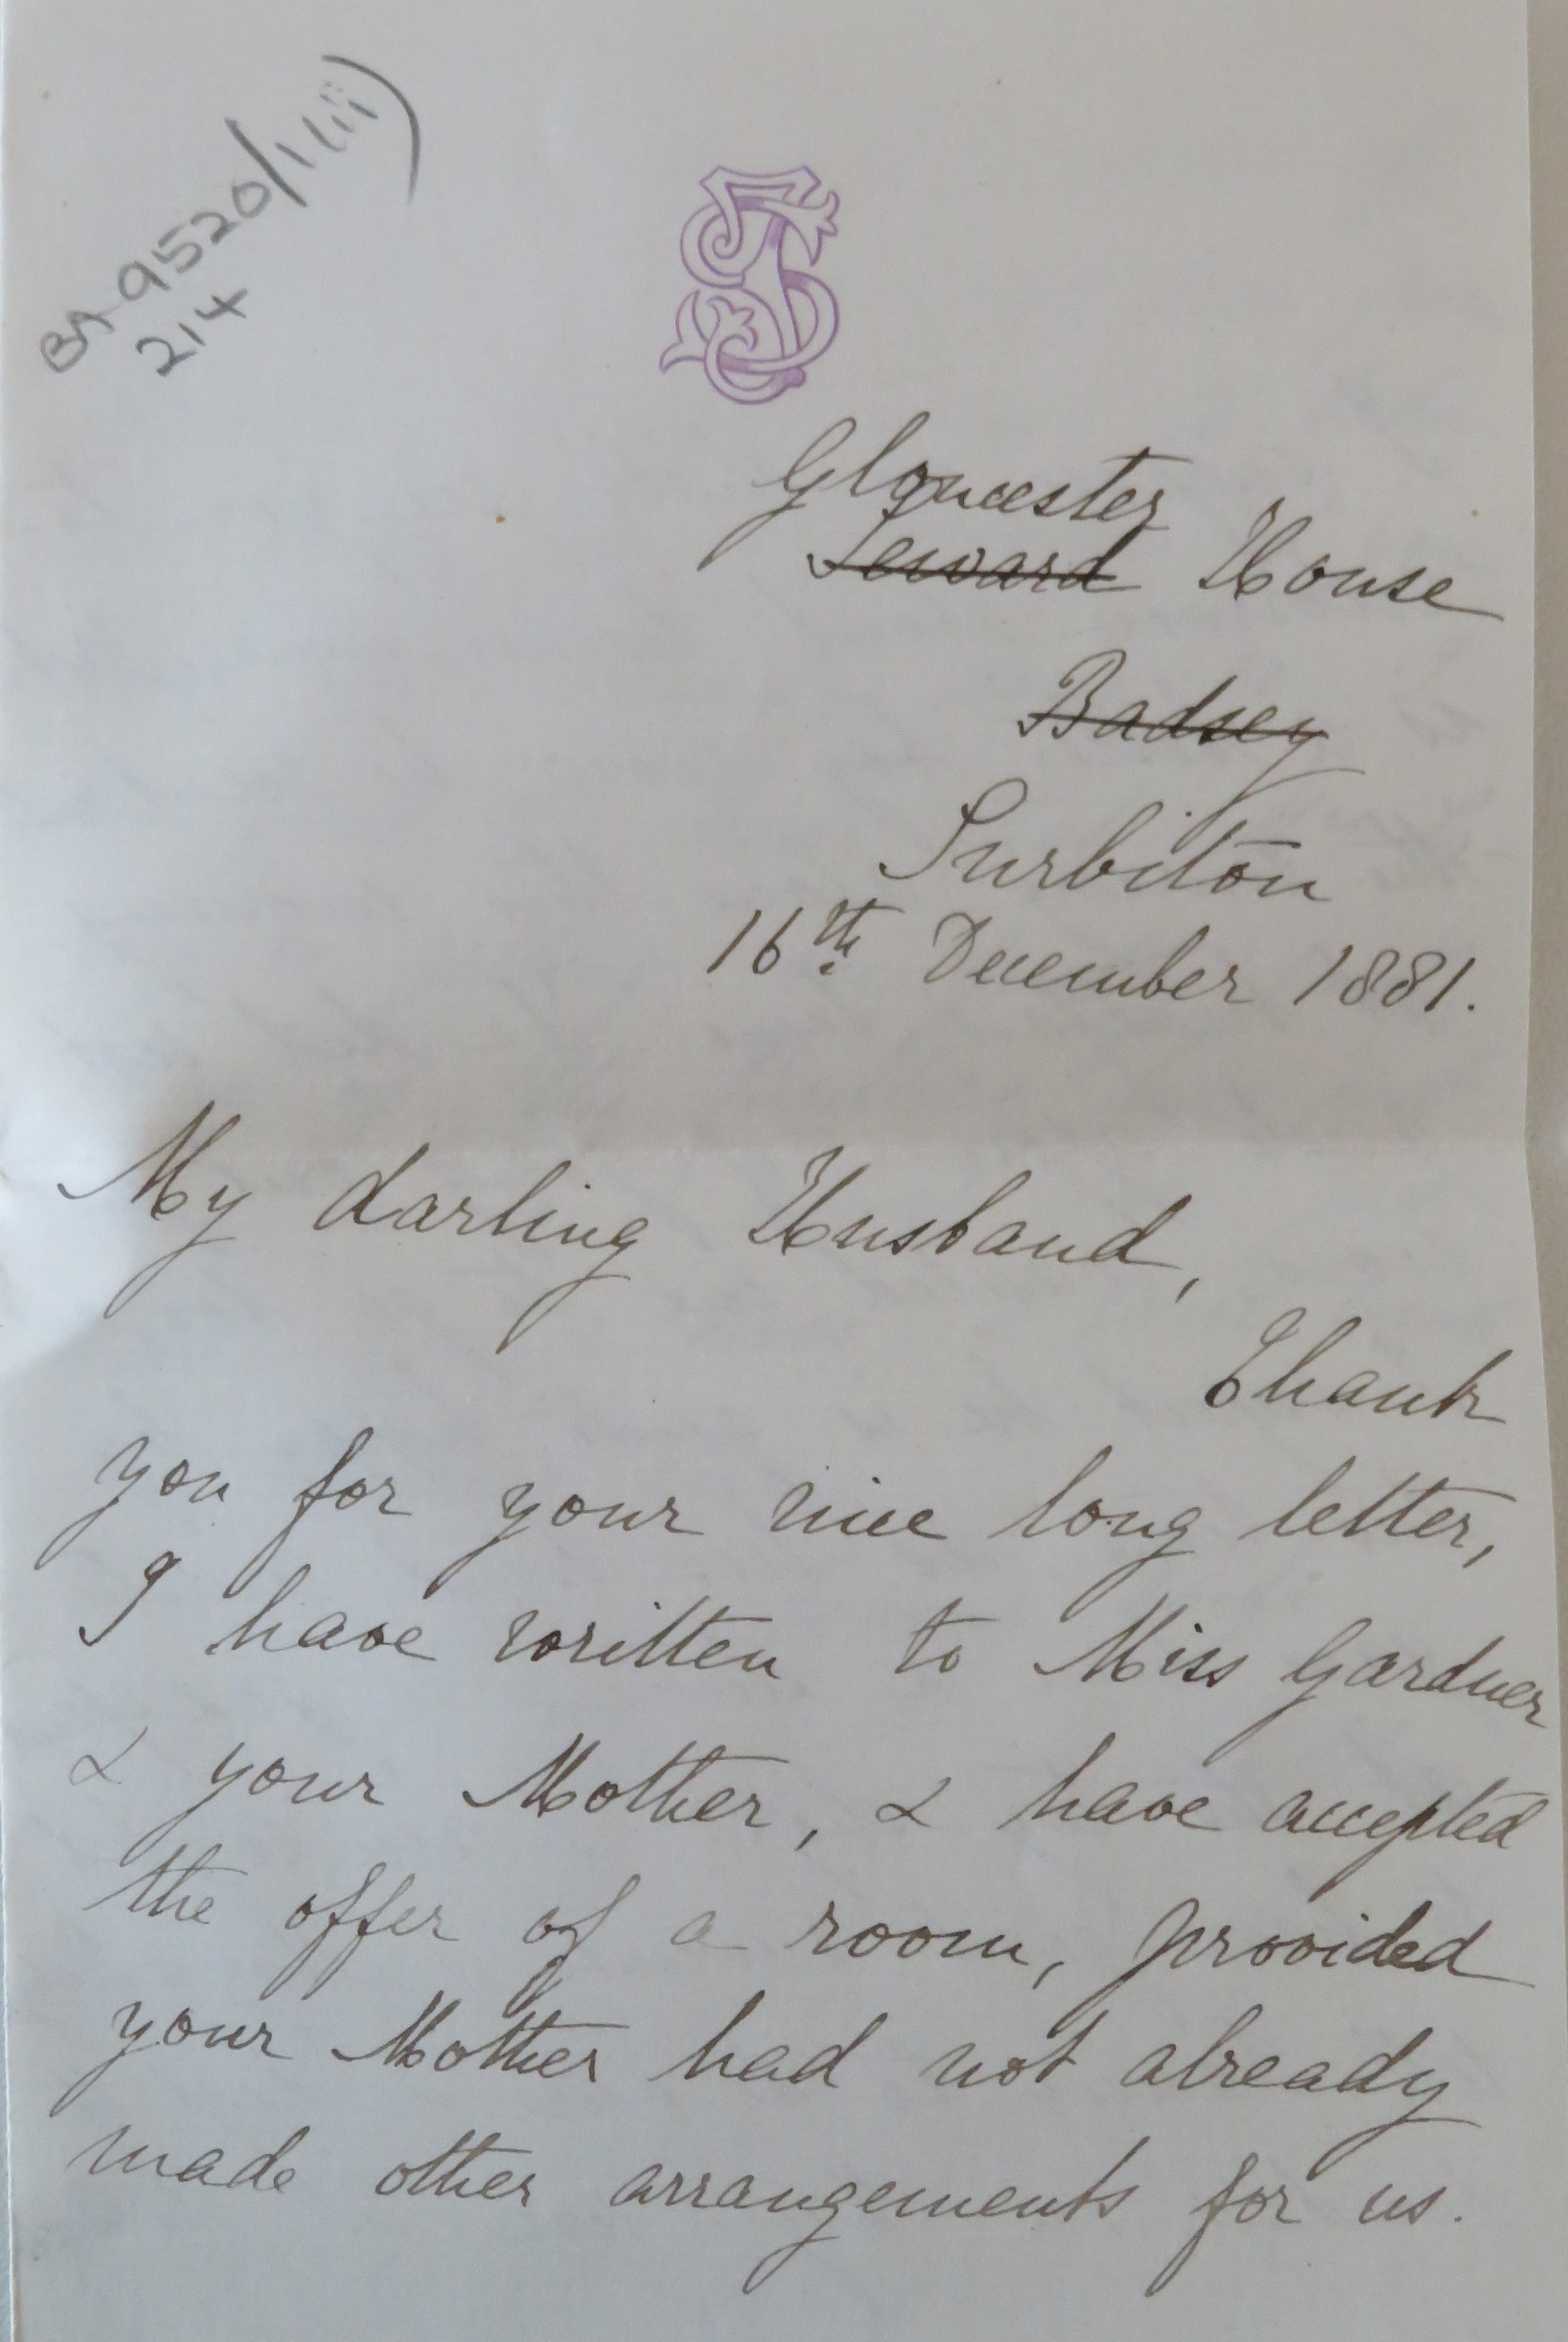 BA 9520/
214
Gloucester
Seward House
Badsey
Surbiton
16th December 1881.
My darling Husband,
Thank
you for your nice long letter,
I have written to Miss Gardner
& your Mother, & have accepted
the offer of a room, provided
your Mother had not already
made other arrangements for us.